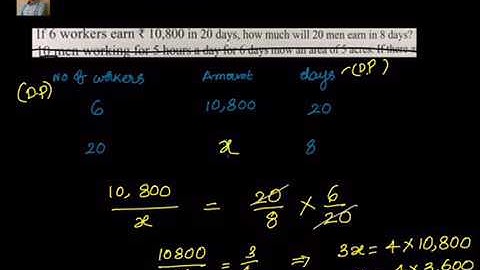 If 6 workers earn ₹ 10,800 in 20 days, how much will 20 men earn in 8 days?
10 men working for 5 hours a day for 6 days mow an area of 5 acres. If there
No of workers Amount days (DP)
(DP)
6 10,800 20
20 x 8
10,800 / x = 20 / 8 × 6 / 20
10800 = 3 ⇒ 3x = 4 × 10,800
4 × 3,600